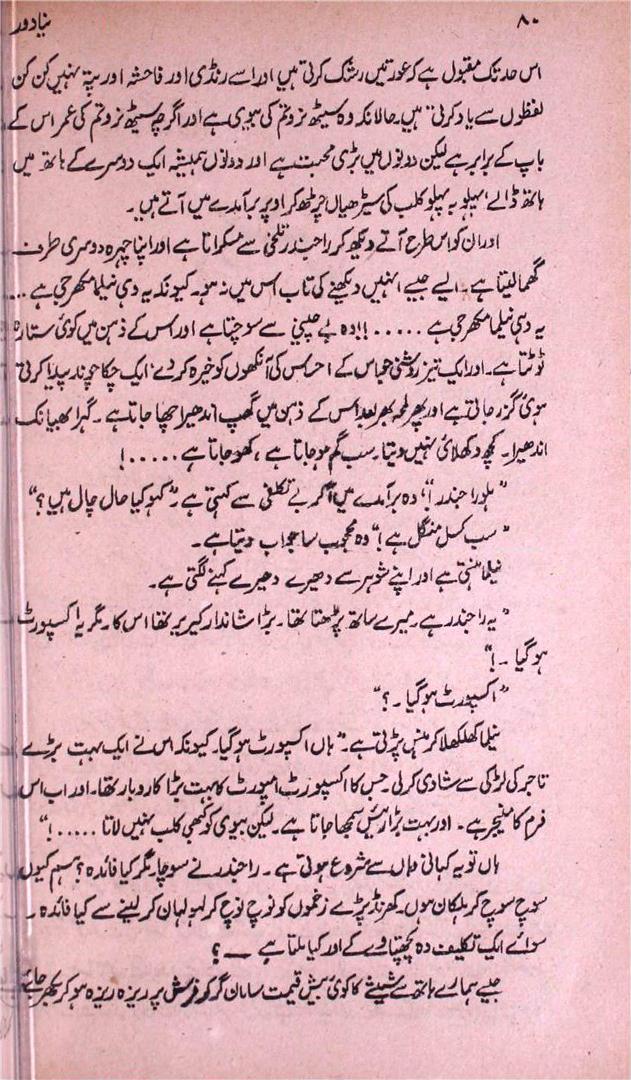 ۸۰
نیا دور
اس حد تک مقبول ہے کہ عورتیں رشک کرتی ہیں اور اسے رنڈی اور فاحشہ اور پتہ نہیں کن کن
لفظوں سے یاد کرتی ہیں۔ حالانکہ وہ سیٹھ نروتم کی بیوی ہے اور اگرچہ سیٹھ نروتم کی عمر اس کے
باپ کے برابر ہے لیکن دونوں میں بڑی محبت ہے اور دونوں ہمیشہ ایک دوسرے کے ہاتھ میں
ہاتھ ڈالے، پہلو بہ پہلو کلب کی سیڑھیاں چڑھ کر اوپر برآمدے میں آتے ہیں۔
اور ان کو اس طرح آتے دیکھ کر راجندر تلخی سے مسکراتا ہے اور اپنا چہرہ دوسری طرف
گھما لیتا ہے۔ ایسے جیسے انہیں دیکھنے کی تاب اس میں نہ ہو۔ کیونکہ یہ وہی نیلما مکھرجی ہے ...
یہ وہی نیلما مکھرجی ہے .....!! وہ بے چینی سے سوچتا ہے اور اس کے ذہن میں کوئی ستارہ
ٹوٹتا ہے۔ اور ایک تیز روشنی جو اس کے احساس کی آنکھوں کو خیرہ کر دے، ایک چکا چوند پیدا کرتی
ہوئی گزر جاتی ہے اور پھر لمحہ بھر بعد اس کے ذہن میں گھپ اندھیرا چھا جاتا ہے۔ گہرا بھیانک
اندھیرا۔ کچھ دکھلائی نہیں دیتا۔ سب گم ہو جاتا ہے، کھو جاتا ہے .....!
"ہلو راجندر!" وہ برآمدے میں آ کر بے تکلفی سے کہتی ہے۔ "کہو کیا حال چال ہیں؟"
"سب کسل منگل ہے!" وہ محجوب سا جواب دیتا ہے۔
نیلما ہنستی ہے اور اپنے شوہر سے دھیرے دھیرے کہنے لگتی ہے۔
"یہ راجندر ہے۔ میرے ساتھ پڑھتا تھا۔ بڑا شاندار کیریر تھا اس کا۔ مگر یہ اکسپورٹ
ہو گیا ۔!"
"اکسپورٹ ہو گیا ۔؟"
نیلما کھلکھلا کر ہنس پڑتی ہے۔ "ہاں اکسپورٹ ہو گیا۔ کیونکہ اس نے ایک بہت بڑے
تاجر کی لڑکی سے شادی کر لی۔ جس کا اکسپورٹ امپورٹ کا بہت بڑا کاروبار تھا۔ اور اب اس
فرم کا منیجر ہے۔ اور بہت بڑا رئیس سمجھا جاتا ہے۔ لیکن بیوی کو کبھی کلب نہیں لاتا .....!"
ہاں تو یہ کہانی وہاں سے شروع ہوتی ہے۔ راجندر نے سوچا۔ مگر کیا فائدہ؟ ہم کیوں
سوچ سوچ کر ہلکان ہوں۔ کھرنڈ پڑے زخموں کو نوچ نوچ کر لہولہان کر لینے سے کیا فائدہ ۔
سوائے ایک تکلیف دہ پچھتاوے کے اور کیا ملتا ہے ۔۔؟
جیسے ہمارے ہاتھ سے شیشے کا کوئی بیش قیمت سامان گر کر فرش پر ریزہ ریزہ ہو کر بکھر جائے